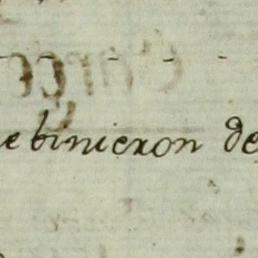 e binieron de